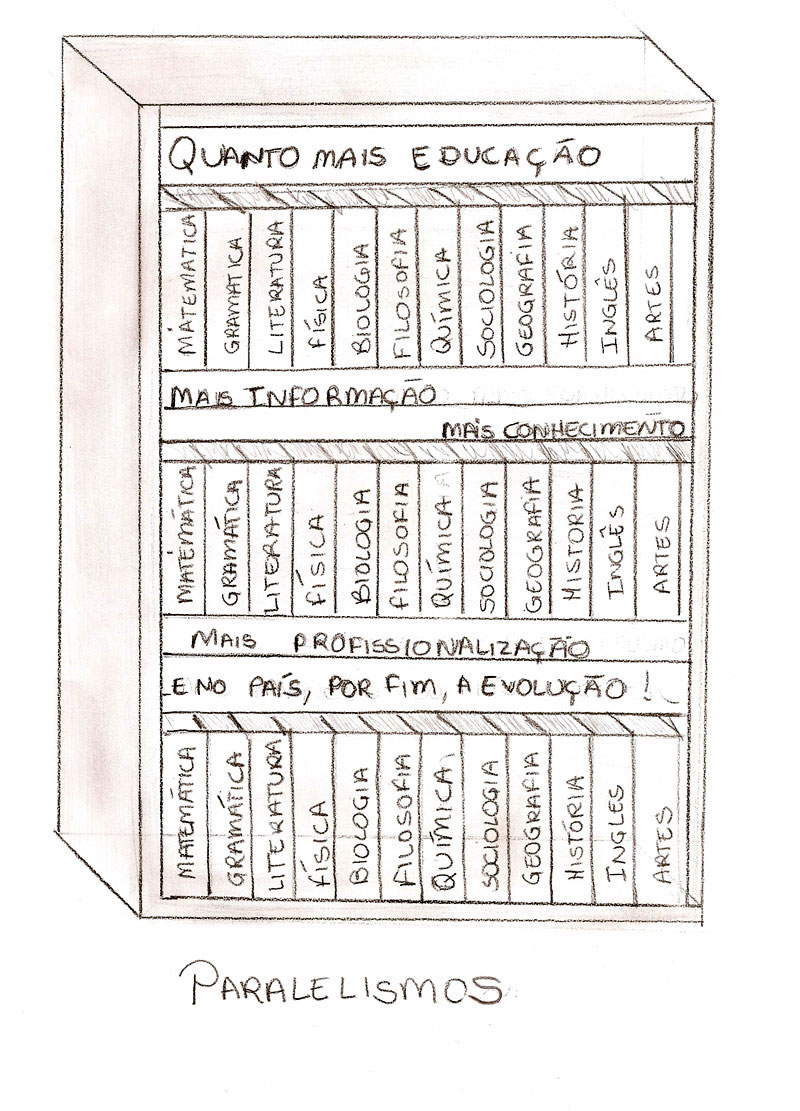 QUANTO MAIS EDUCAÇÃO
MATEMATICA
GRAMATICA
LITERATURA
FÍSICA
BIOLOGIA
FILOSOFIA
QUÍMICA
SOCIOLOGIA
GEOGRAFIA
HISTÓRIA
INGLÊS
ARTES
MAIS INFORMAÇÃO
MAIS CONHECIMENTO
MATEMÁTICA
GRAMÁTICA
LITERATURA
FÍSICA
BIOLOGIA
FILOSOFIA
QUÍMICA
SOCIOLOGIA
GEOGRAFIA
HISTORIA
INGLÊS
ARTES
MAIS PROFISSIONALIZAÇÃO
E NO PAÍS, POR FIM, A EVOLUÇÃO!
MATEMÁTICA
GRAMÁTICA
LITERATURA
FÍSICA
BIOLOGIA
FILOSOFIA
QUÍMICA
SOCIOLOGIA
GEOGRAFIA
HISTÓRIA
INGLES
ARTES
PARALELISMOS